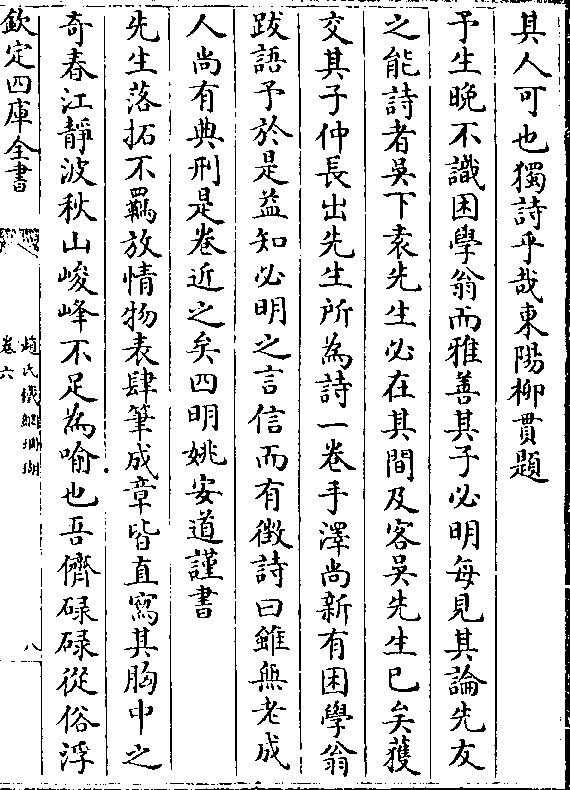 其人可也獨詩乎哉東陽柳貫題
予生晚不識困學翁而雅善其子必明每見其論先友
之能詩者吳下袁先生必在其間及客吳先生已矣獲
交其子仲長出先生所為詩一卷手澤尚新有困學翁
跋語予於是益知必明之言信而有徴詩曰雖無老成
人尚有典刑是卷近之矣四明姚安道謹書
先生落拓不羈放情物表肆筆成章皆直寫其胸中之
奇春江靜波秋山峻峰不足為喻也吾儕碌碌從俗浮
欽定四庫全書
趙氏鐵網珊瑚
卷六
八